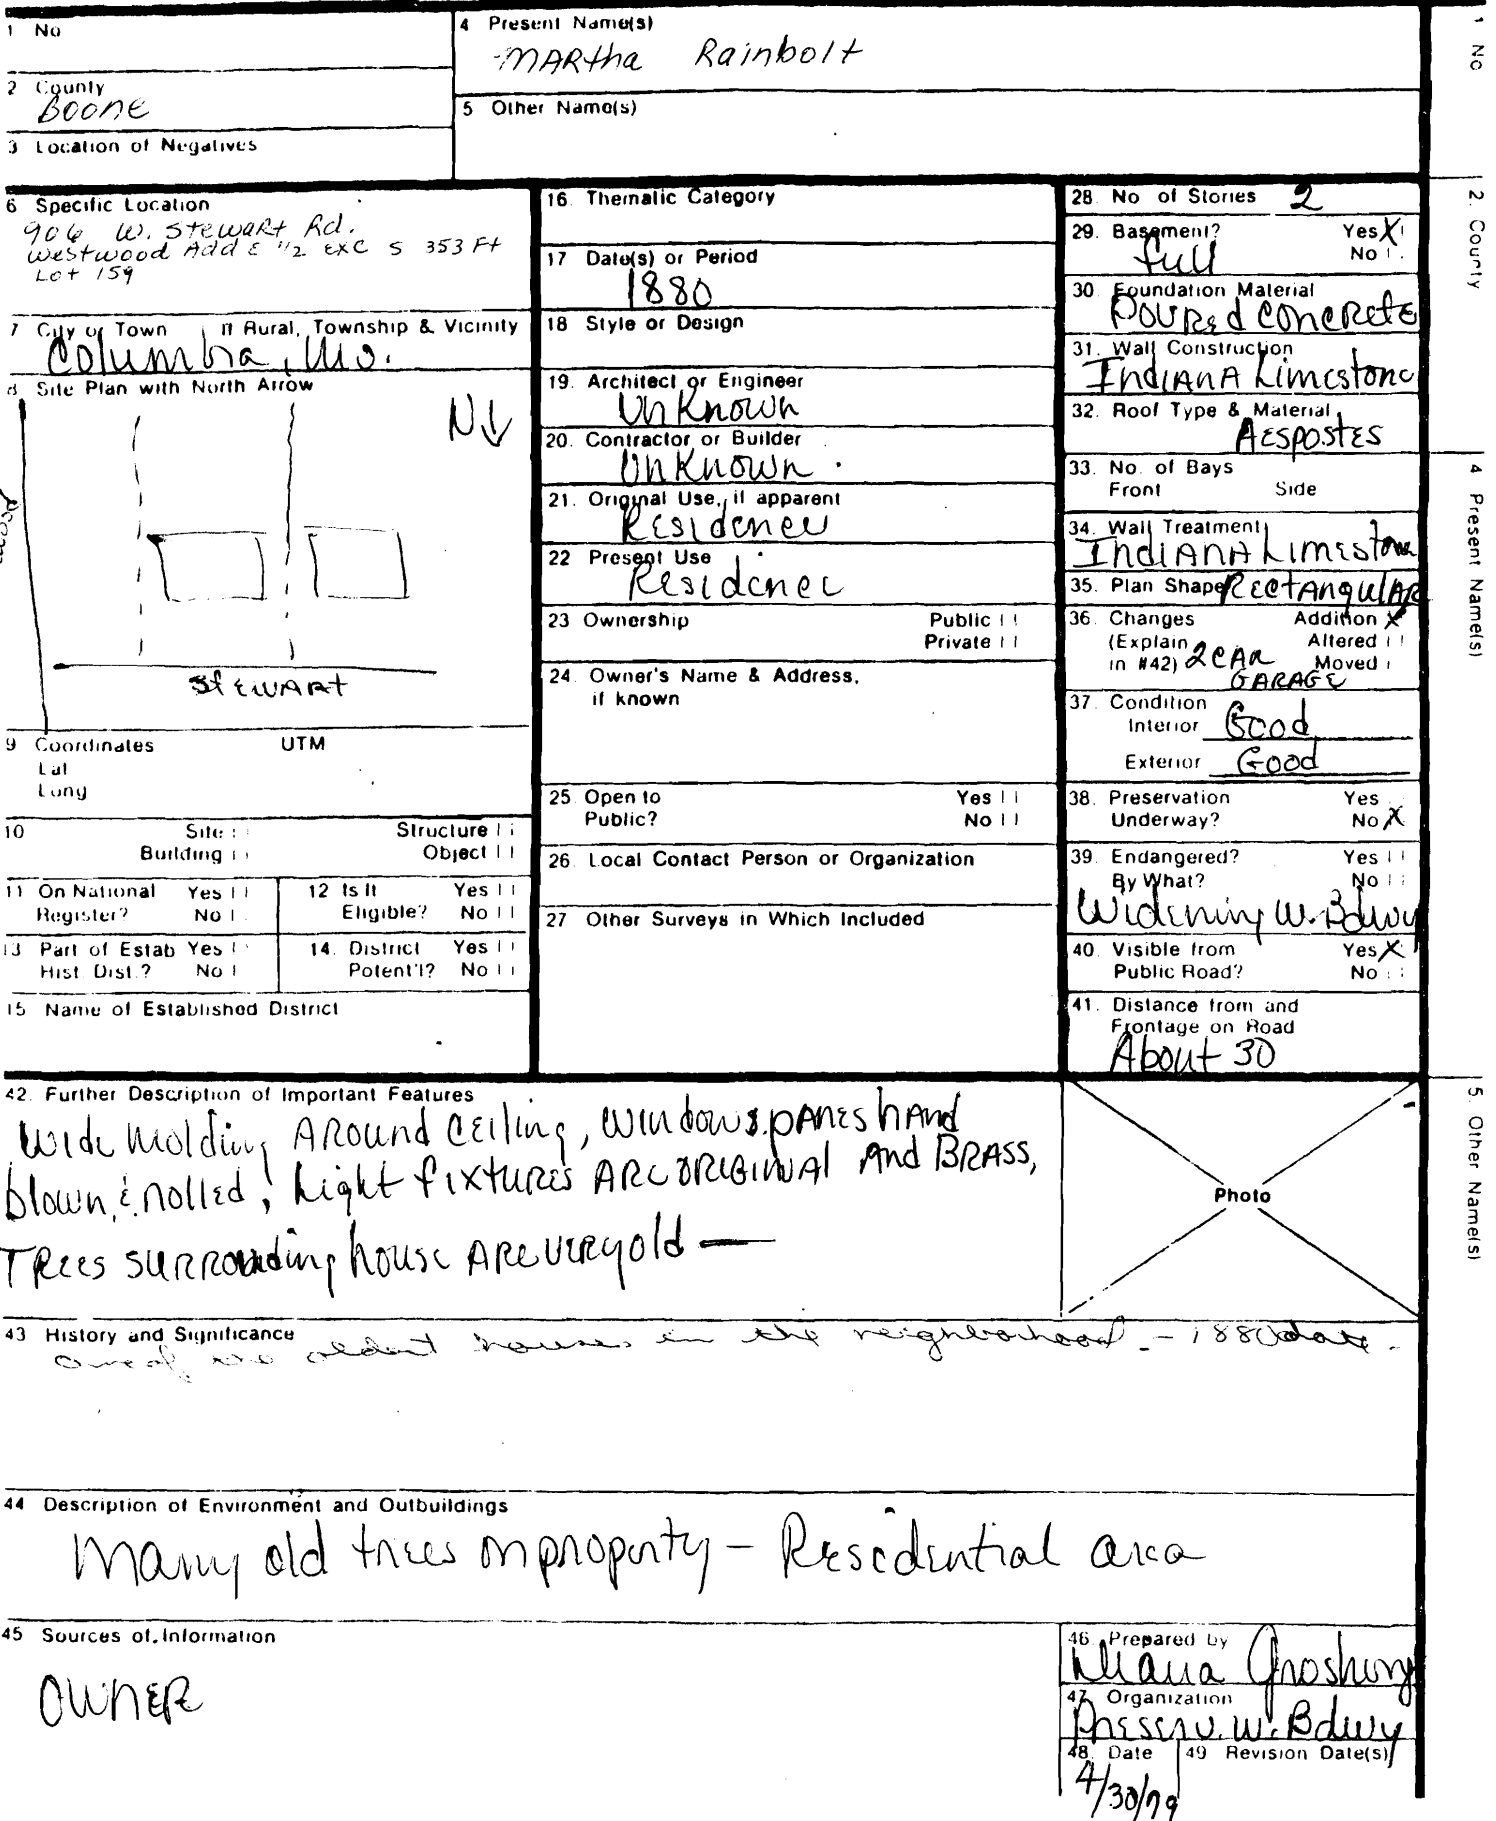 1 No
4 Present Name(s)
MARtha Rainbolt
2 County
Boone
5 Other Name(s)
3 Location of Negatives
6 Specific Location
906 W. Stewart Rd.
Westwood Add E 1/2 exc S 353 Ft
Lot 159
7 City or Town If Rural, Township & Vicinity
Columbia, Mo.
8 Site Plan with North Arrow
N↓
STEWART
9 Coordinates UTM
Lat
Long
10 Site Structure
Building Object
11 On National Register? Yes No
12 Is It Eligible? Yes No
13 Part of Estab Hist Dist.? Yes No
14. District Potent'l? Yes No
15 Name of Established District
16. Thematic Category
17 Date(s) or Period
1880
18 Style or Design
19. Architect or Engineer
UnKnown
20. Contractor or Builder
UnKnown
21. Original Use, if apparent
Residence
22 Present Use
Residence
23 Ownership Public
Private
24. Owner's Name & Address,
if known
25. Open to Yes
Public? No
26. Local Contact Person or Organization
27 Other Surveys in Which Included
28. No of Stories 2
29. Basement? Yes X
full No
30 Foundation Material
Poured concrete
31. Wall Construction
Indiana Limestone
32. Roof Type & Material
AESPOSTES
33. No. of Bays
Front Side
34. Wall Treatment
Indiana Limestone
35. Plan Shape Rectangular
36. Changes Addition X
(Explain Altered
in #42) 2 CAR Moved
GARAGE
37. Condition
Interior Good
Exterior Good
38. Preservation Yes
Underway? No X
39. Endangered? Yes
By What? No
Widening W. Bdwy
40. Visible from Yes X
Public Road? No
41. Distance from and
Frontage on Road
About 30
42. Further Description of Important Features
Wide molding Around ceiling, windows panes hand
blown & rolled, Light fixtures are original and BRASS,
Trees surrounding house are very old —
Photo
43 History and Significance
One of the oldest houses in the neighborhood - 1880 date.
44 Description of Environment and Outbuildings
Many old trees on property - Residential area
45 Sources of Information
OWNER
46. Prepared by
47. Organization
Preserv. W. Bdwy
48. Date 49 Revision Date(s)
4/30/79
1 No
2. County
4 Present Name(s)
5 Other Name(s)